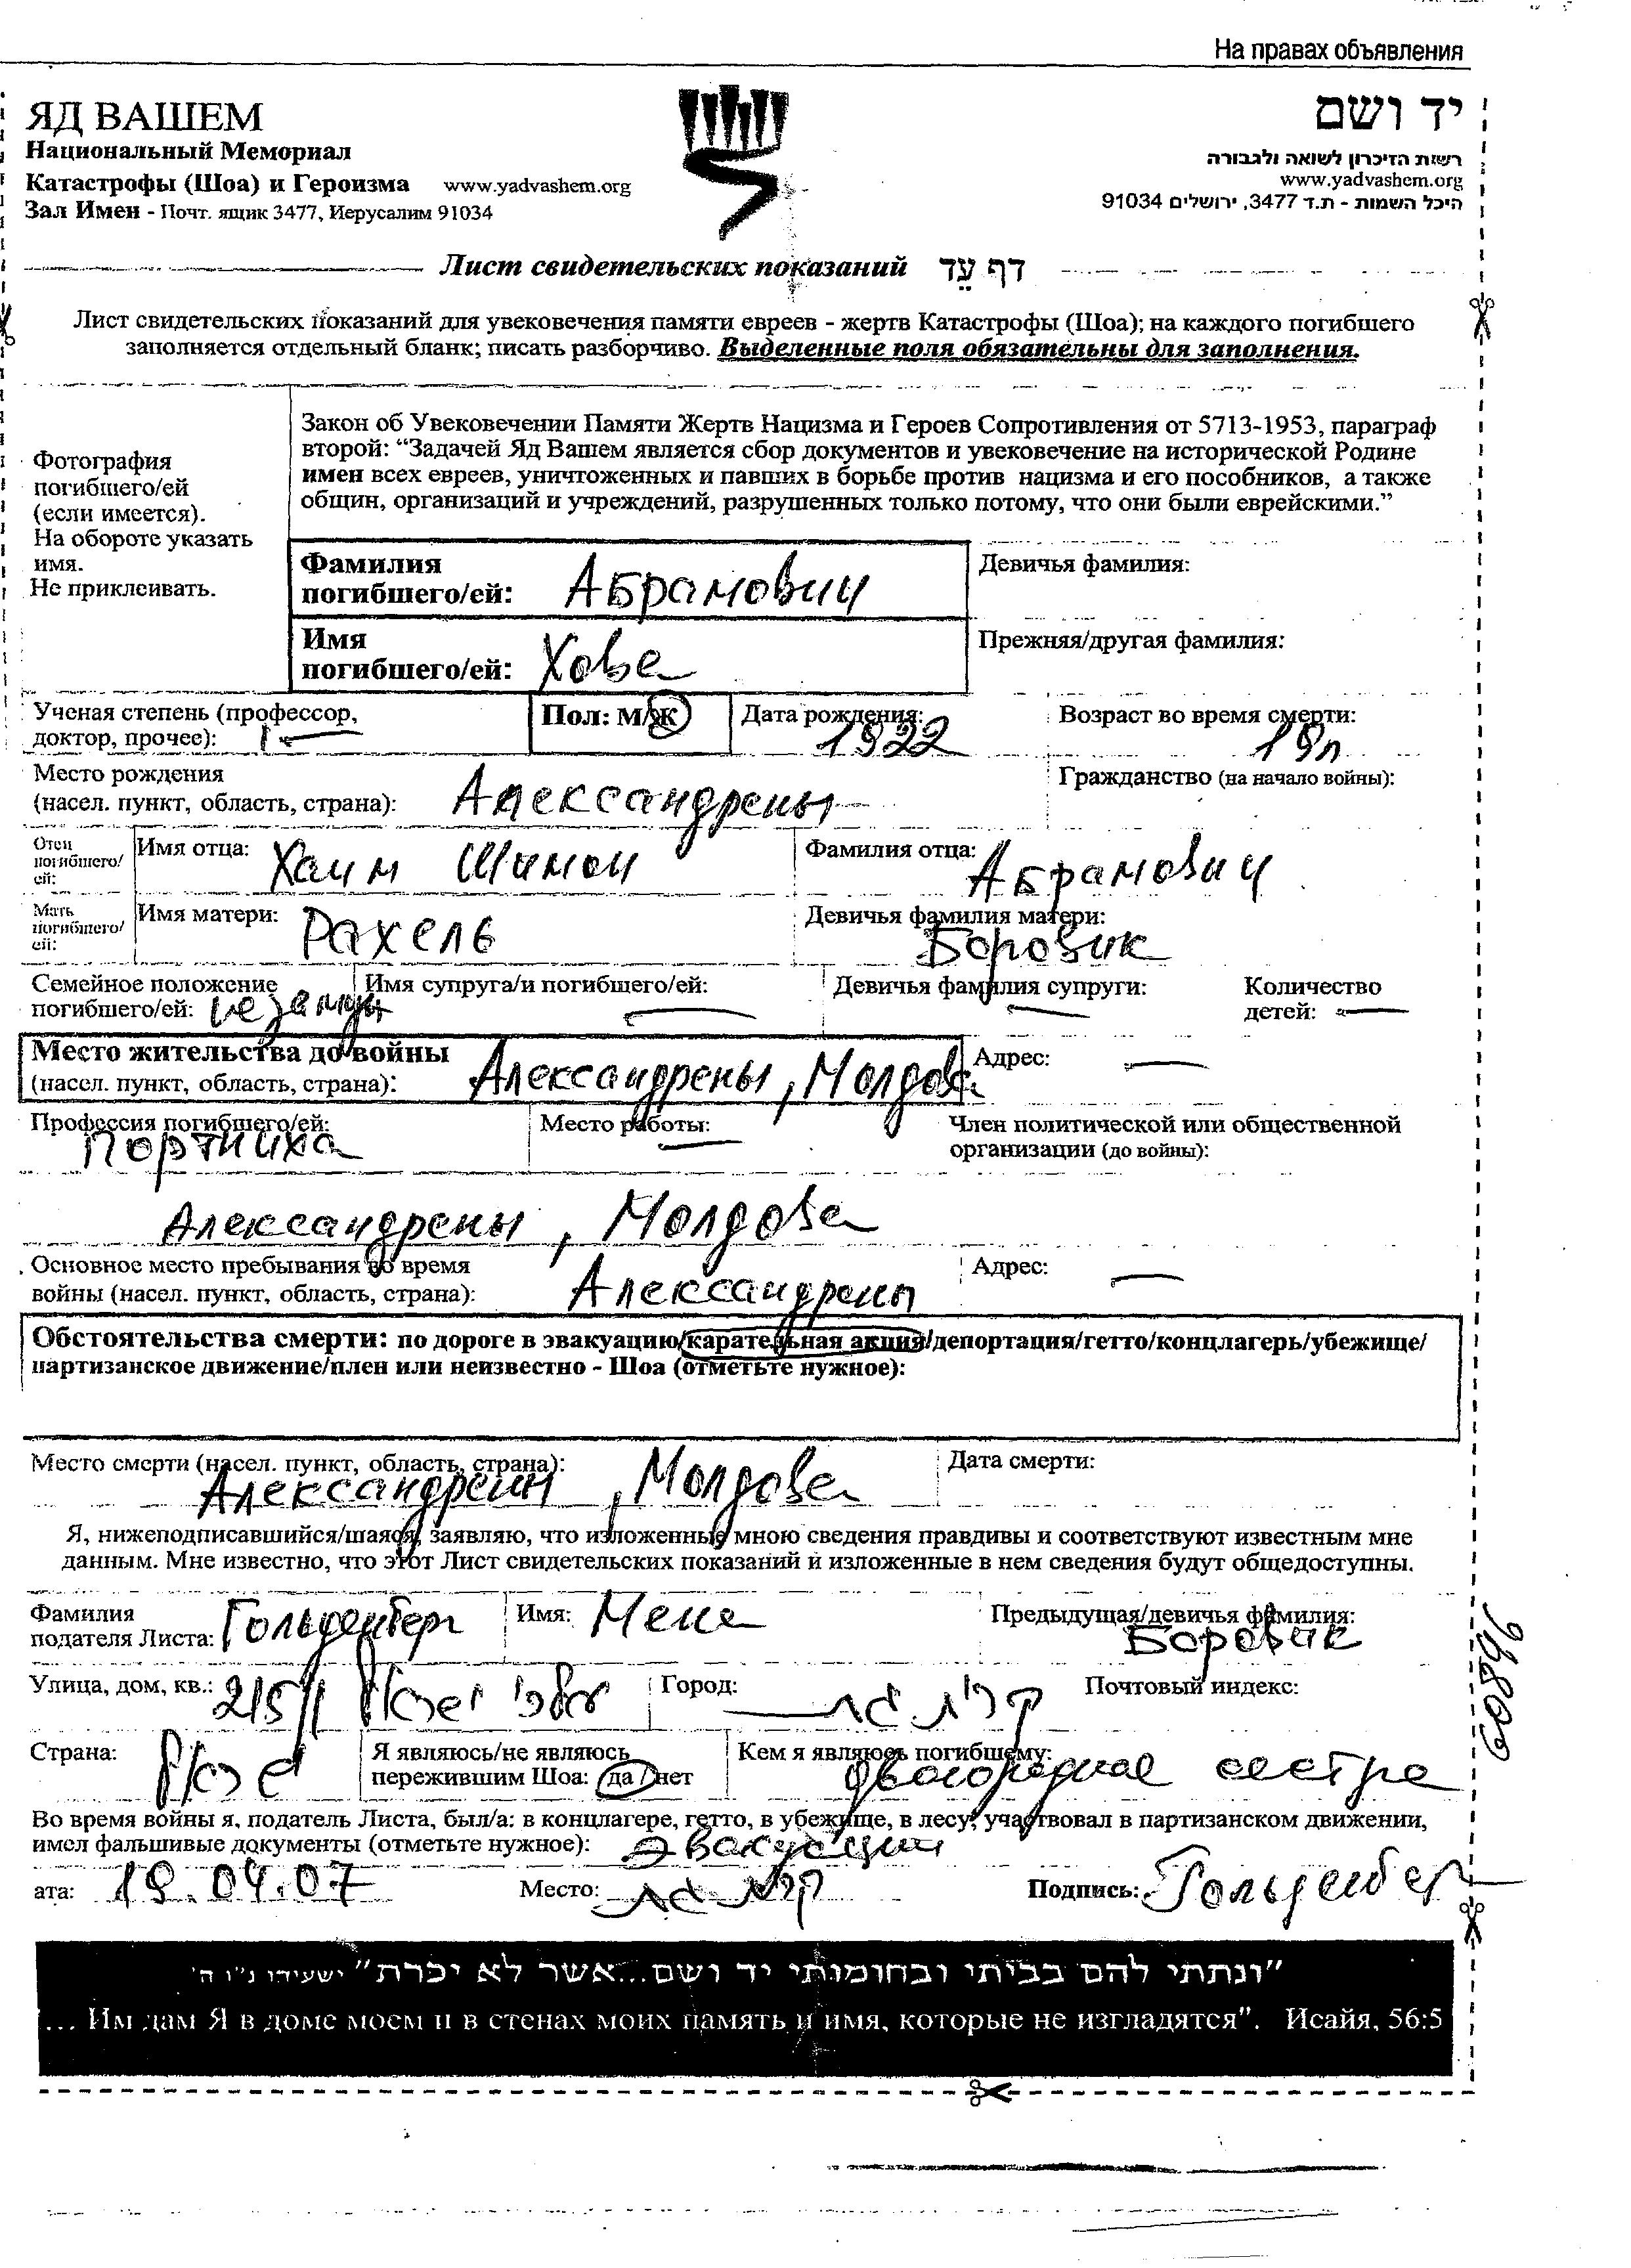 На правах объявления
ЯД ВАШЕМ
Национальный Мемориал
Катастрофы (Шоа) и Героизма www.yadvashem.org
Зал Имен - Почт. ящик 3477, Иерусалим 91034
יד ושם
רשות הזיכרון לשואה ולגבורה
www.yadvashem.org
היכל השמות - ת.ד 3477, ירושלים 91034
Лист свидетельских показаний דף עֵד
Лист свидетельских показаний для увековечения памяти евреев - жертв Катастрофы (Шоа); на каждого погибшего
заполняется отдельный бланк; писать разборчиво. Выделенные поля обязательны для заполнения.
Фотография
погибшего/ей
(если имеется).
На обороте указать
имя.
Не приклеивать.
Закон об Увековечении Памяти Жертв Нацизма и Героев Сопротивления от 5713-1953, параграф
второй: “Задачей Яд Вашем является сбор документов и увековечение на исторической Родине
имен всех евреев, уничтоженных и павших в борьбе против нацизма и его пособников, а также
общин, организаций и учреждений, разрушенных только потому, что они были еврейскими.”
Фамилия
погибшего/ей: Абрамович
Девичья фамилия:
Имя
погибшего/ей: Хова
Прежняя/другая фамилия:
Ученая степень (профессор,
доктор, прочее):
Пол: М/Ж
Дата рождения: 1922
Возраст во время смерти: 19л
Место рождения
(насел. пункт, область, страна): Александрены
Гражданство (на начало войны):
Отец
погибшего/
ей:
Имя отца: Хаим Шимон
Фамилия отца: Абрамович
Мать
погибшего/
ей:
Имя матери: Рахель
Девичья фамилия матери: Боровик
Семейное положение
погибшего/ей: незамуж
Имя супруга/и погибшего/ей: —
Девичья фамилия супруги: —
Количество
детей: —
Место жительства до войны
(насел. пункт, область, страна): Александрены, Молдова
Адрес: —
Профессия погибшего/ей: Портниха
Место работы: —
Член политической или общественной
организации (до войны):
Александрены, Молдова
Основное место пребывания во время
войны (насел. пункт, область, страна): Александрены
Адрес: —
Обстоятельства смерти: по дороге в эвакуацию/карательная акция/депортация/гетто/концлагерь/убежище/
партизанское движение/плен или неизвестно - Шоа (отметьте нужное):
Место смерти (насел. пункт, область, страна): Александрены, Молдова
Дата смерти:
Я, нижеподписавшийся/шаяся, заявляю, что изложенные мною сведения правдивы и соответствуют известным мне
данным. Мне известно, что этот Лист свидетельских показаний и изложенные в нем сведения будут общедоступны.
Фамилия
подателя Листа: Гольденберг
Имя: Меня
Предыдущая/девичья фамилия: Боровик
Улица, дом, кв.:
Город: קרית גת
Почтовый индекс:
Страна: ישראל
Я являюсь/не являюсь
пережившим Шоа: да/нет
Кем я являюсь погибшему: двоюродная сестра
Во время войны я, податель Листа, был/а: в концлагере, гетто, в убежище, в лесу, участвовал в партизанском движении,
имел фальшивые документы (отметьте нужное): Эвакуации
ата: 19.04.07
Место: קרית גת
Подпись: Гольденберг
60896
"ונתתי להם בביתי ובחומותי יד ושם...אשר לא יכרת" ישעיהו נ"ו ה'
"... Им дам Я в доме моем и в стенах моих память и имя, которые не изгладятся". Исайя, 56:5